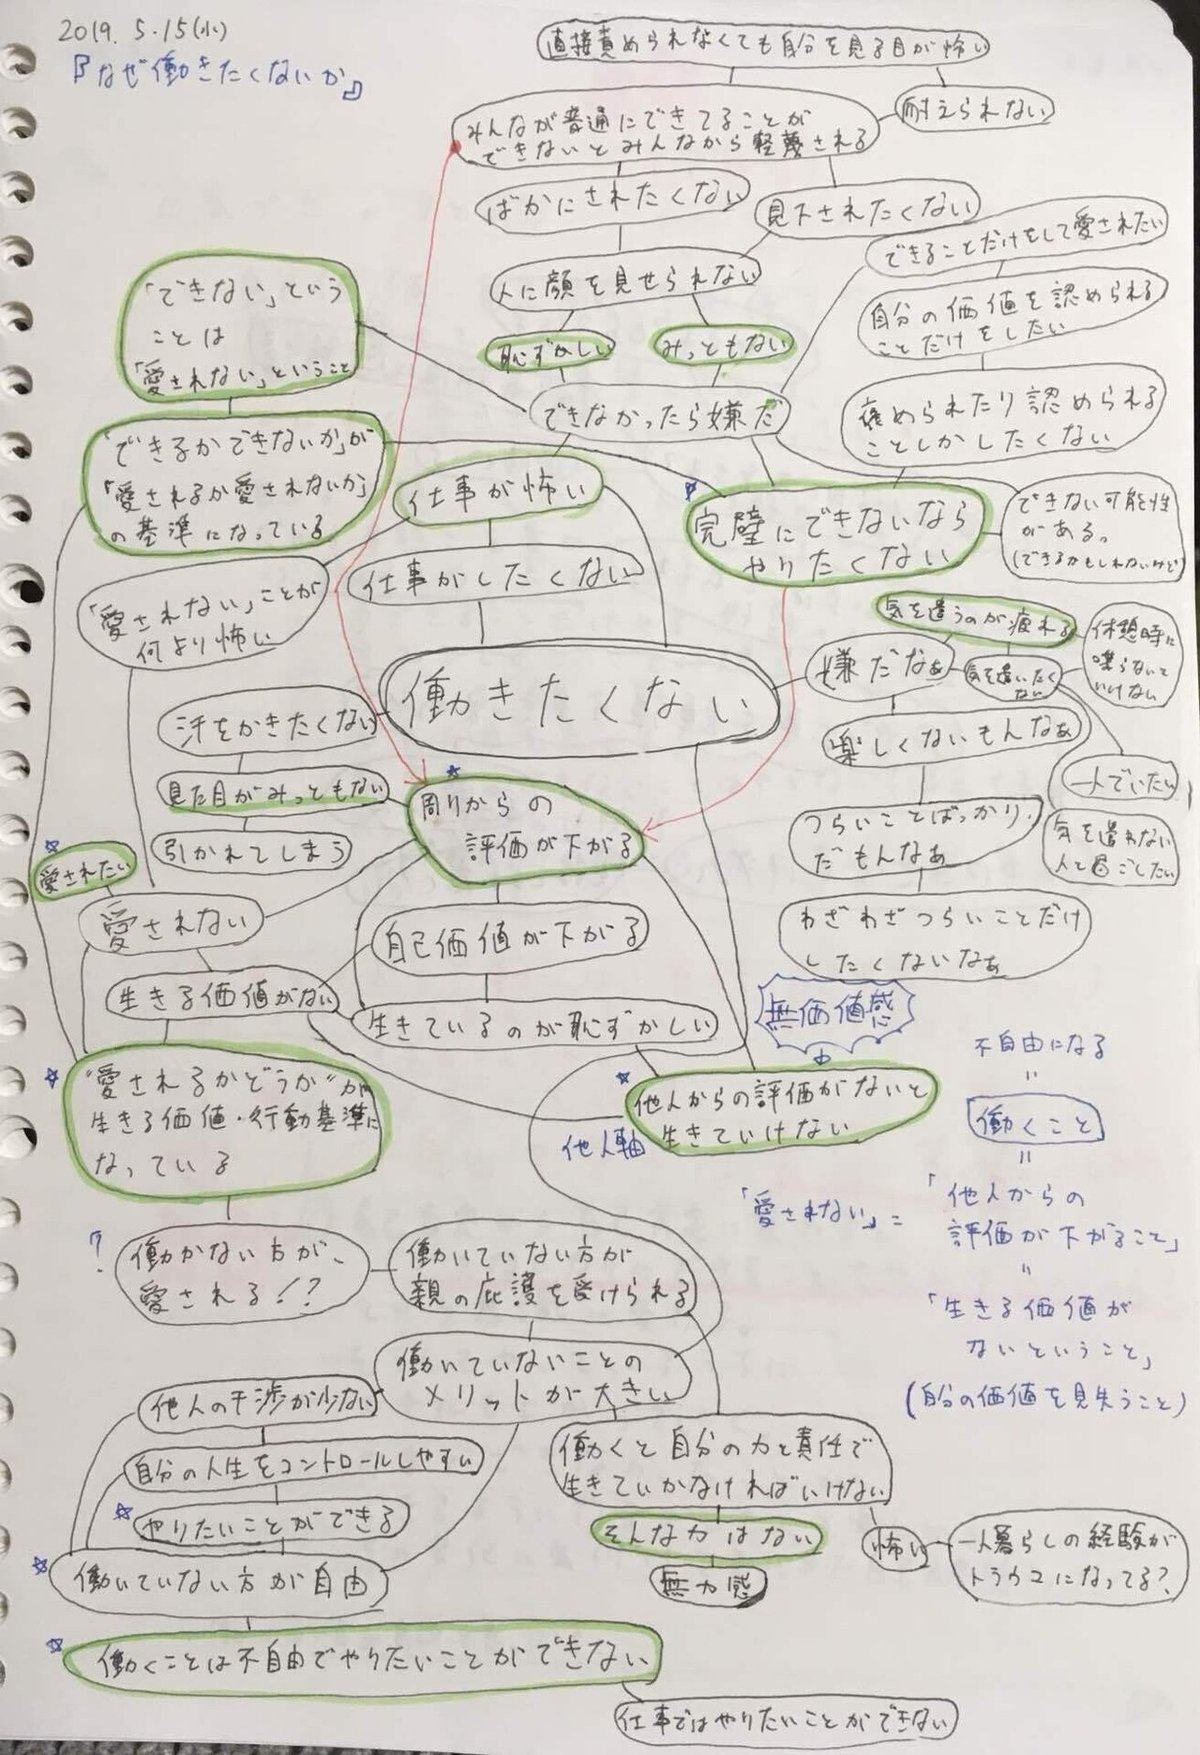 2019. 5.15(水)
『なぜ働きたくないか』
直接責められなくても自分を見る目が怖い
耐えられない
みんなが普通にできてることが
できないとみんなから軽蔑される
ばかにされたくない
見下されたくない
人に顔を見せられない
恥ずかしい
みっともない
できなかったら嫌だ
できることだけをして愛されたい
自分の価値を認められる
ことだけをしたい
褒められたり認められる
ことしかしたくない
「できない」という
ことは
「愛されない」ということ
「できるかできないか」が
「愛されるか愛されないか」
の基準になっている
仕事が怖い
仕事がしたくない
完璧にできないなら
やりたくない
できない可能性
がある。
(できるかもしれないけど)
「愛されない」ことが
何より怖い
働きたくない
嫌だなぁ
気を遣うのが疲れる
気を遣いたく
ない
休憩時に
喋らないと
いけない
楽しくないもんなぁ
一人でいたい
気を遣わない
人と過ごしたい
つらいことばっかり
だもんなぁ
わざわざつらいことだけ
したくないなぁ
汗をかきたくない
見た目がみっともない
引かれてしまう
周りからの
評価が下がる
愛されたい
愛されない
自己価値が下がる
生きる価値がない
生きているのが恥ずかしい
無価値感
"愛されるかどうか"が
生きる価値・行動基準に
なっている
他人からの評価がないと
生きていけない
他人軸
不自由になる
=
働くこと
=
「愛されない」=
「他人からの
評価が下がること」
=
「生きる価値が
ないということ」
(自分の価値を見失うこと)
?
働かない方が、
愛される!?
働いていない方が
親の庇護を受けられる
働いていないことの
メリットが大きい
他人の干渉が少ない
自分の人生をコントロールしやすい
やりたいことができる
働いていない方が自由
働くことは不自由でやりたいことができない
仕事ではやりたいことができない
働くと自分の力と責任で
生きていかなければいけない
そんな力はない
無力感
怖い
一人暮らしの経験が
トラウマになってる?